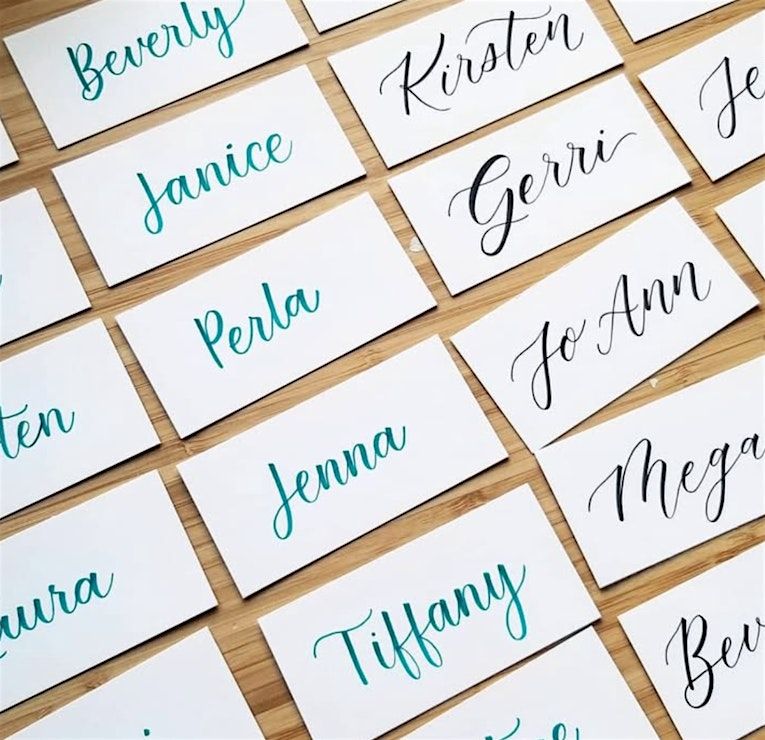 Beverly
Kirsten
Janice
Gerri
Je
Perla
Jo Ann
ten
Jenna
Mega
aura
Tiffany
Bev